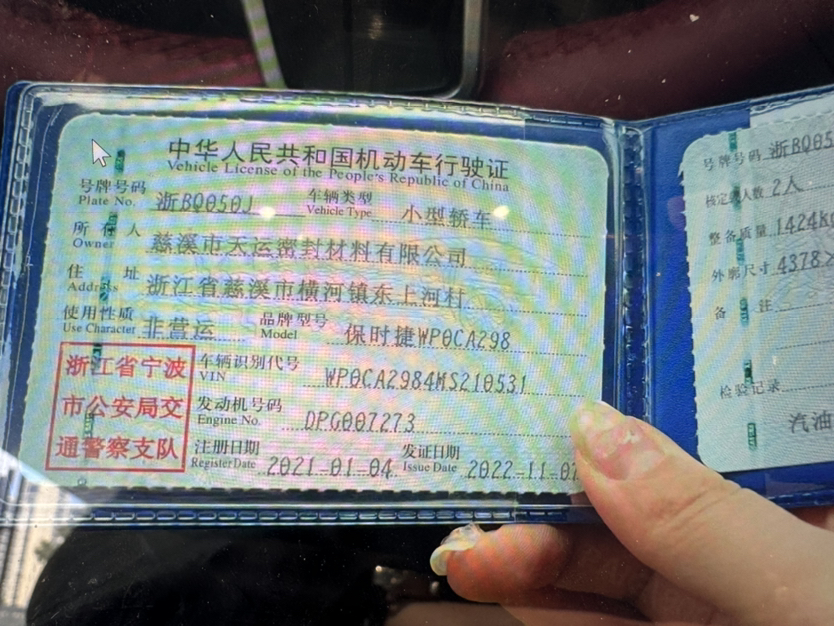 中华人民共和国机动车行驶证
Vehicle License of the People's Republic of China
号牌号码 浙BQ050J 车辆类型 小型轿车
Plate No. Vehicle Type
所有人 慈溪市天运密封材料有限公司
Owner
住址 浙江省慈溪市横河镇东上河村
Address
使用性质 非营运 品牌型号 保时捷WP0CA298
Use Character Model
浙江省宁波
市公安局交
通警察支队
车辆识别代号 WP0CA2984MS210531
VIN
发动机号码 DPG007273
Engine No.
注册日期 2021-01-04 发证日期 2022-11-07
Register Date Issue Date
号牌号码 浙BQ05
核定载人数 2人
整备质量 1424kg
外廓尺寸 4378×
备注
检验记录
汽油